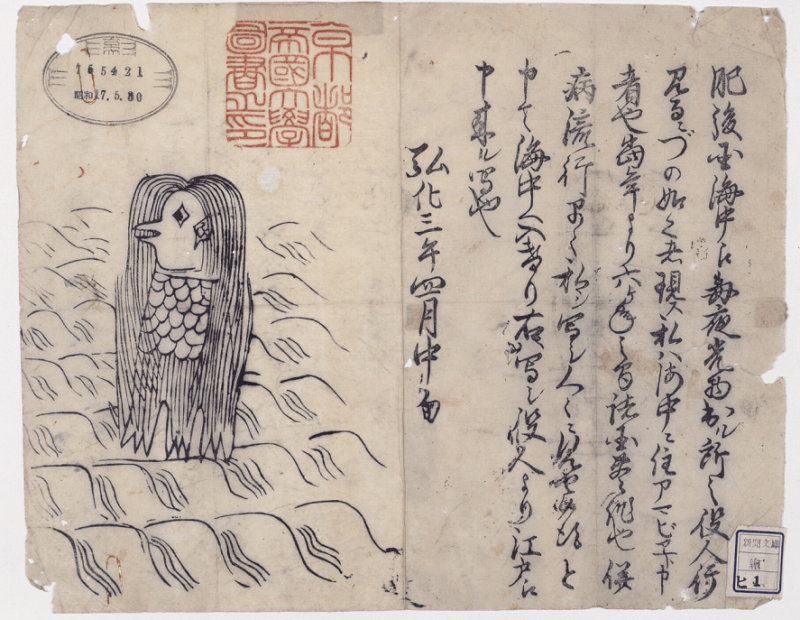 肥後国海中え毎夜光物出ル所之役人行
見るニづの如く之者現ス私ハ海中ニ住アマビヱト申
者也当年より六ヶ年之間諸国豊作也併
病流行早々私ヲ写シ人々ニ見セ候得と
申て海中へ入けり右写シ役人より江戸え
申来ル写也
弘化三年四月中旬
京都
帝國大學
圖書之印
昭和17.5.30
新聞文庫
繪
ヒ1